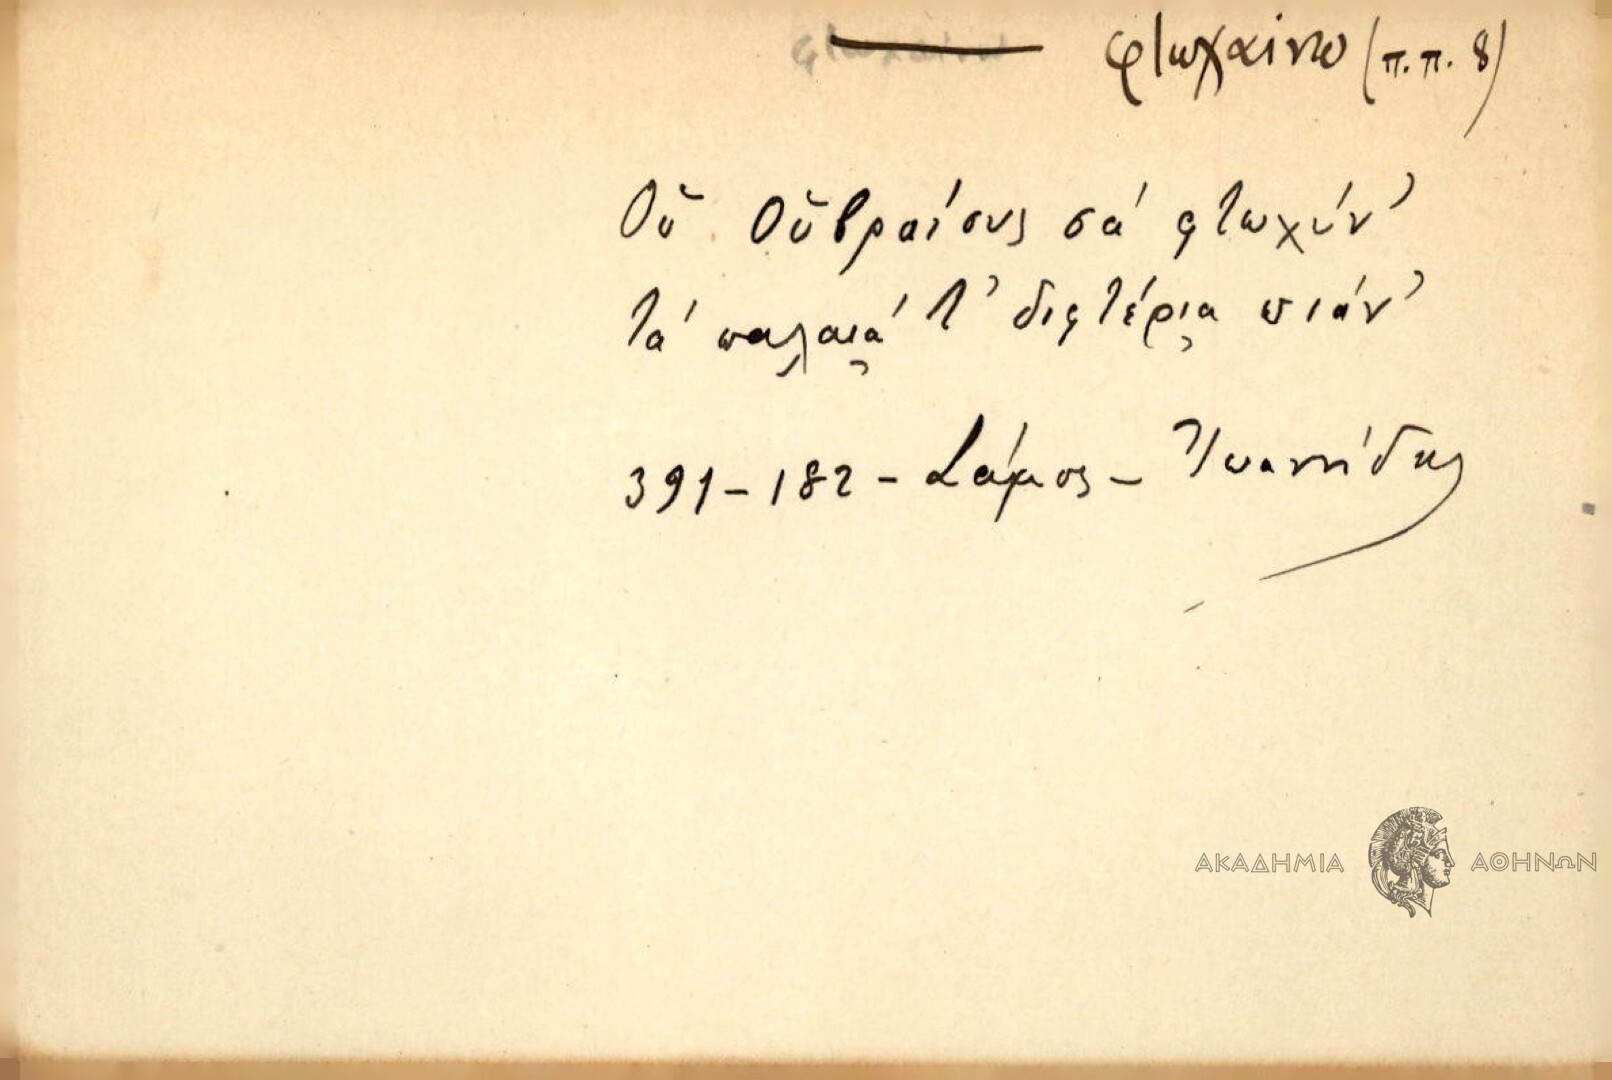 φτωχαίνω (π.π. 8)
Οὑ Οὑβραίους σά φτωχύν'
τά παλαιά τ' διφτέρια πιάν'
391-182 - Σάμος - Ἰωαννίδης
ΑΚΑΔΗΜΙΑ ΑΘΗΝΩΝ